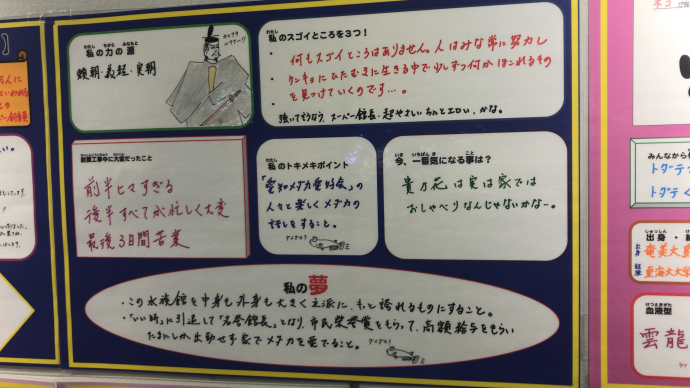 私の力の源
頼朝・義経・実朝
私のスゴイところを3つ!
・何もスゴイところはありません。人はみな常に努力し
・ケンキョにひたむきに生きる中で少しずつ何かほこれるもの
・を見つけていくのです…。
・強いて言うなら、スーパー館長・超やさしい・ちょっとエロい、かな。
開館工事中に大変だったこと
前半ヒマすぎる
後半すべて忙しく大変
最後3日間苦業
私のトキメキポイント
「愛知メダカ愛好会」の
人々と楽しくメダカの
話しをすること。
今、一番気になる事は?
貴乃花は実は家では
おしゃべりなんじゃないかな…。
私の夢
・この水族館を中身も外身も大きく立派に、もっと誇れるものにすること。
・「いい時」に引退して「名誉館長」となり、市民栄誉賞をもらって、高額給与をもらい
たまにしか出勤せず家でメダカを愛でること。
みんなから
出身・
出身
奄美大島
東海大
血液型
雲龍